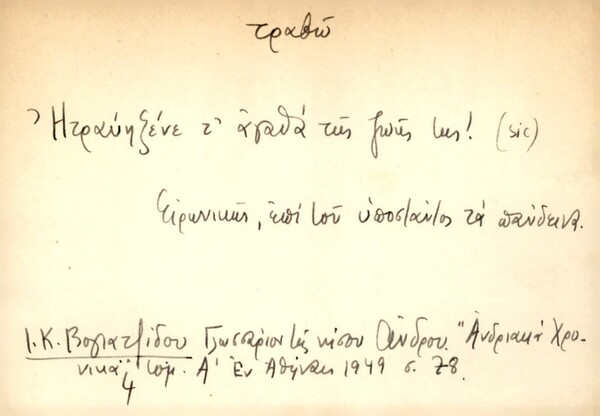 τραβῶ
Ἠτραύηξένε τ' ἀγαθά τῆς ζωῆς της! (sic)
Εἰρωνικῶς, ἐπί τοῦ ὑποστάντος τά πάνδεινα.
Ι. Κ. Βογιατζίδου Γλωσσάριον τῆς νήσου Ἄνδρου. "Ἀνδριακά Χρο-
νικά", τόμ. Α' Ἐν Ἀθήναις 1949 σ. 78.
4